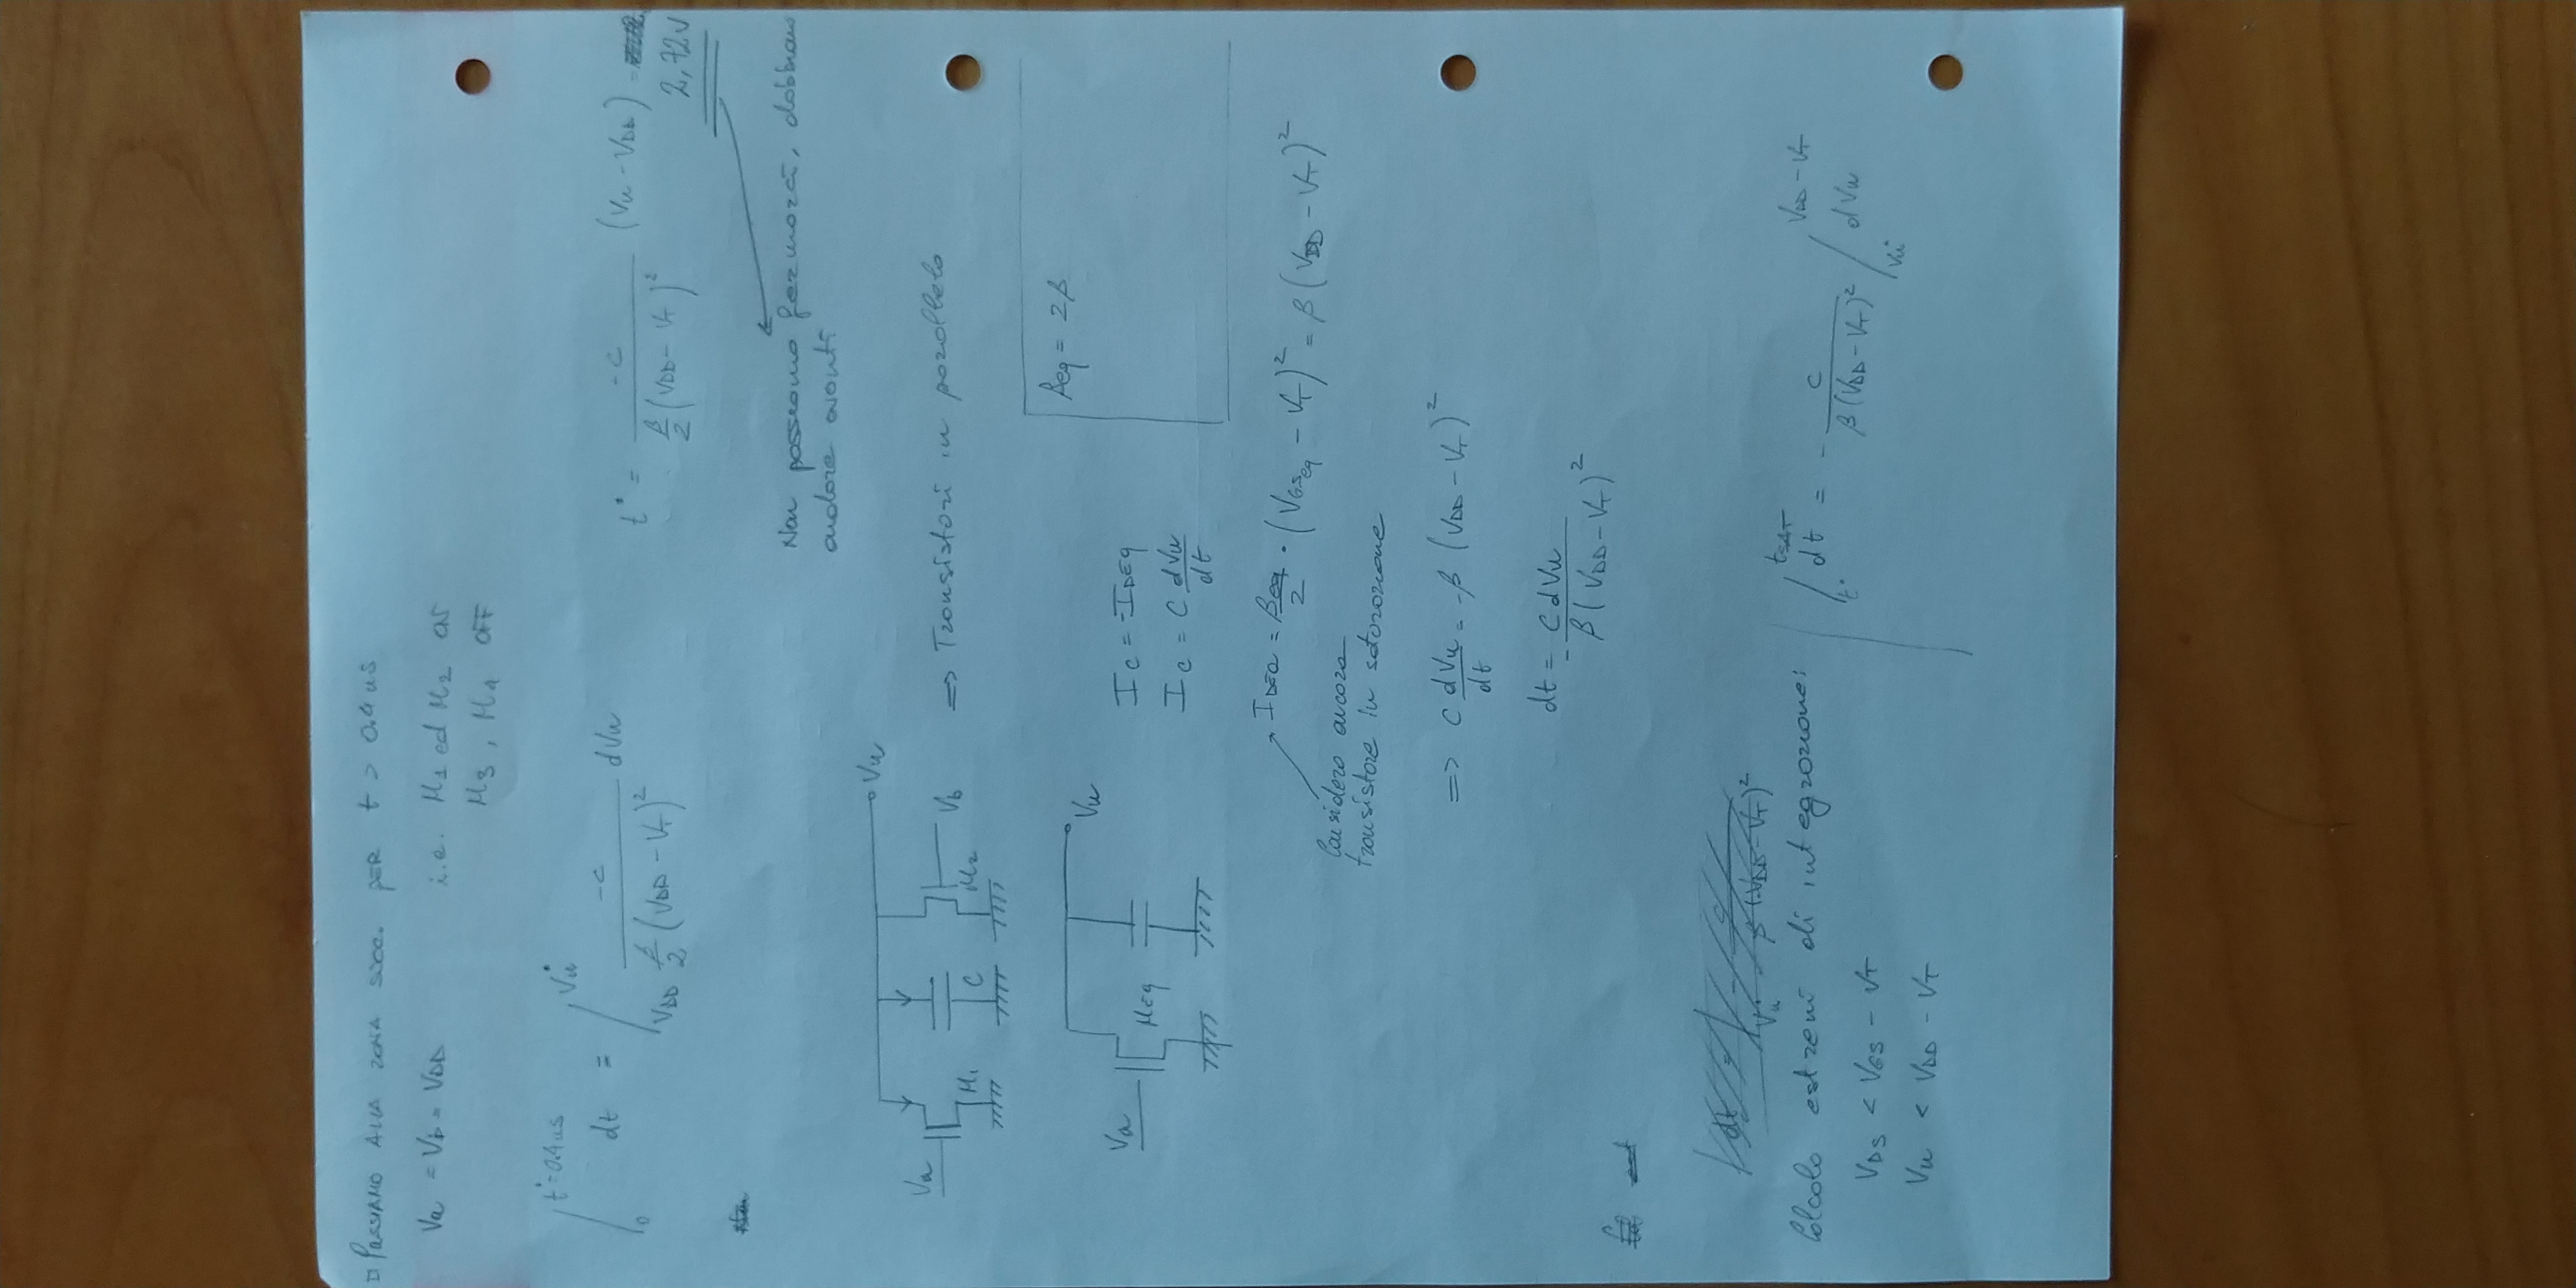 □ PASSIAMO ALLA ZONA SUCC. PER t > 0.4 ns
Va = Vb = VDD i.e. M1 ed M2 ON
M3, M4 OFF
∫₀^{t*=0.4ns} dt = ∫_{VDD}^{Vu*} -C / (β/2 (VDD - VT)²) dVu
t* = -C / (β/2 (VDD - VT)²) (Vu - VDD) =
2,72V
Non possiamo fermarci, dobbiamo
andare avanti
Vu
Va M1 C M2 Vb
=> Transistori in parallelo
Va MEq Vu
IC = -IDEq
IC = C dVu/dt
βeq = 2β
IDEQ = βeq/2 · (VGSeq - VT)² = β (VDD - VT)²
Considero ancora
transistore in saturazione
=> C dVu/dt = -β (VDD - VT)²
dt = - C dVu / (β (VDD - VT)²)
Calcolo estremi di integrazione:
VDS < VGS - VT
Vu < VDD - VT
∫_{t*}^{tSAT} dt = - C / (β (VDD - VT)²) ∫_{Vu*}^{VDD - VT} dVu